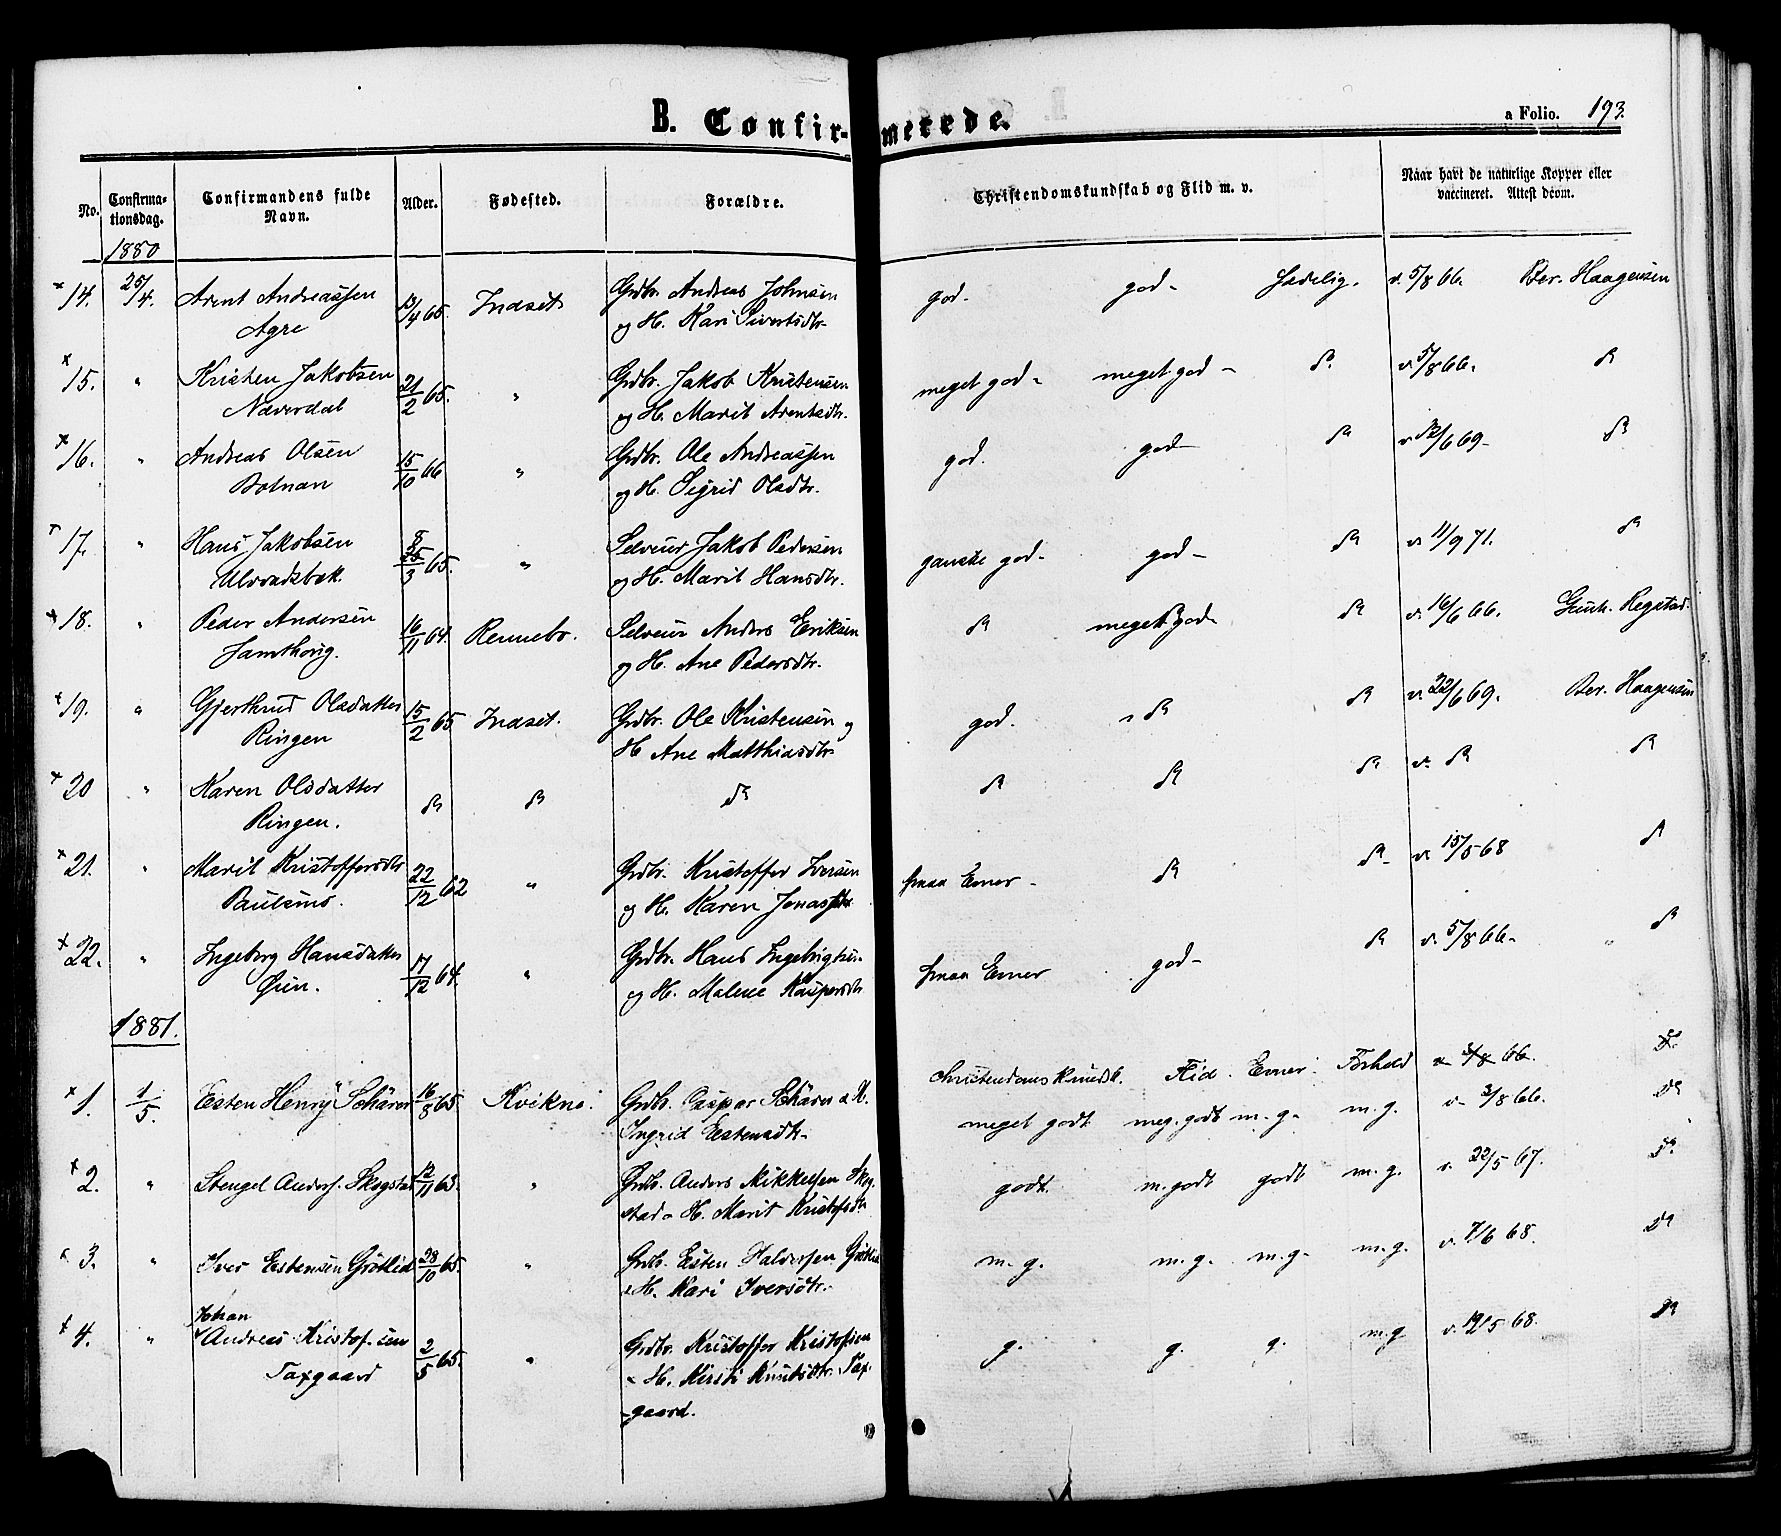 B. Confir- merede. a Folio. 193.
No. Confirma- Confirmandens fulde Alder. Fødested. Forældre. Christendomskundskab og Flid m. v. Naar havt de naturlige Kopper eller
tionsdag. Navn. vaccineret. Attest deom.
1880
14. 25/4. Arent Andreassen 13/4 65. Indset Grdbr. Andreas Johnsen god. god - Sædelig. v. 5/8 66. Ber. Haagensen
Agre og H. Kari Sivertsdtr.
15. " Kristen Jakobsen 21/2 65. " Grdbr. Jakob Kristensen meget god - meget god - do v. 5/8 66. do
Næverdal og H. Marit Arentsdtr.
16. " Andreas Olsen 15/10 66 " Grdbr. Ole Andreassen god. god - do v. 22/6 69 - do
Bolnan og H. Sigrid Olsdtr.
17. " Hans Jakobsen 8/3 65. " Selveier Jakob Pedersen ganske god - god - do v. 11/9 71. do
Ulvvadsbæk. og H. Marit Hansdtr.
18. " Peder Andersen 16/11 64. Rennebo. Selveier Anders Eriksen do meget god. do v. 16/6 66. Gunh. Regstad.
Jamthong. og H. Ane Pedersdtr.
19. " Gjerthrud Olsdatter 15/2 65 Indset. Grdbr. Ole Kristensen og god. " do do v. 22/6 69. Ber. Haagensen
Ringen H. Ane Matthiasdtr.
20 " Karen Olsdatter do do do do do do v. do do
Ringen.
21. " Marit Kristoffersdtr 22/12 62 " Grdbr. Kristoffer Iversen smaa Evner - do do - v. 15/5 68 do
Paulsmo. og H. Karen Jonasdtr
22. " Ingeborg Hansdatter 17/12 64. " Grdbr. Hans Ingebrigtsen smaa Evner god - do v. 5/8 66. do
Øien. og H. Malene Kaspersdtr
1881.
Christendomskundsk. Flid. Evner. Forhold v. 3/8 66.
1. 1/5. Esten Henry Schärer 16/8 65. Kvikne. Grdbr. Caspar Schärer & H. meget godt meg. godt m. g. m. g. v. 3/8 66. Do
Ingrid Estensdtr.
2. " Stengel Andersf. Skogstad 12/11 63. " Grdb. Anders Mikkelsen Skog- godt. m. godt godt m. g. v. 22/5 67. Do
stad - H. Marit Kristofsdtr
3. " Iver Estensen Grötlid 28/10 65. " Grdb. Esten Halvorsen Grötlid m. g. m. g. m. g. m. g. v. 7/6 68. Do
& H. Kari Iversdtr.
Johan
4. " Andreas Kristof.sen 2/5 65. " Grdbr. Kristoffer Kristofsen g. g. g. m. g v. 19/5 68. Do
Taxgaard - H. Kirsti Knutsdtr. Tax-
gaard.